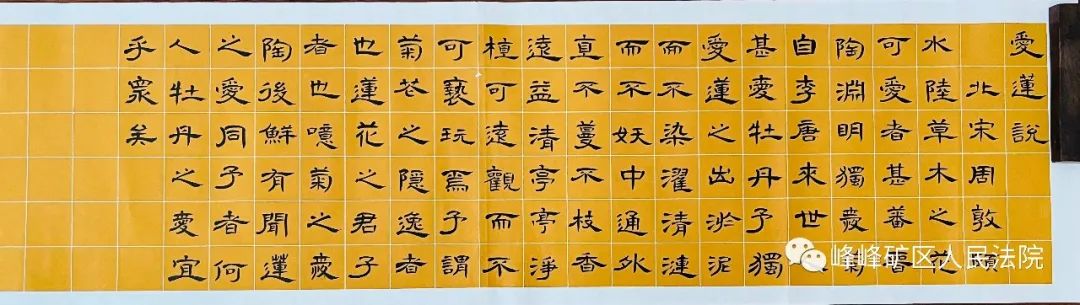 愛蓮說
北宋周敦頤
水陸草木之花
可愛者甚蕃晉
陶淵明獨愛菊
自李唐來世
甚愛牡丹予獨
愛蓮之出淤泥
而不染濯清漣
而不妖中通外
直不蔓不枝香
遠益清亭亭淨
植可遠觀而不
可褻玩焉予謂
菊花之隱逸者
也蓮花之君子
者也噫菊之愛
陶後鮮有聞蓮
之愛同予者何
人牡丹之愛宜
乎眾矣
峰峰矿区人民法院